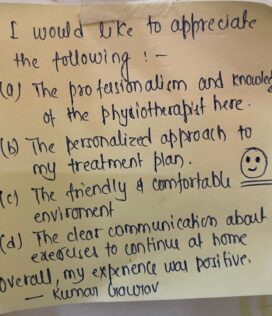 I would like to appreciate
the following :-
(a) The professionalism and knowled
of the physiotherapist here.
(b) The personalized approach to
my treatment plan.
(c) The friendly & comfortable
enviroment
(d) The clear communication about
exercises to continue at home
Overall, my experience was positive.
— Kumar Gaurav